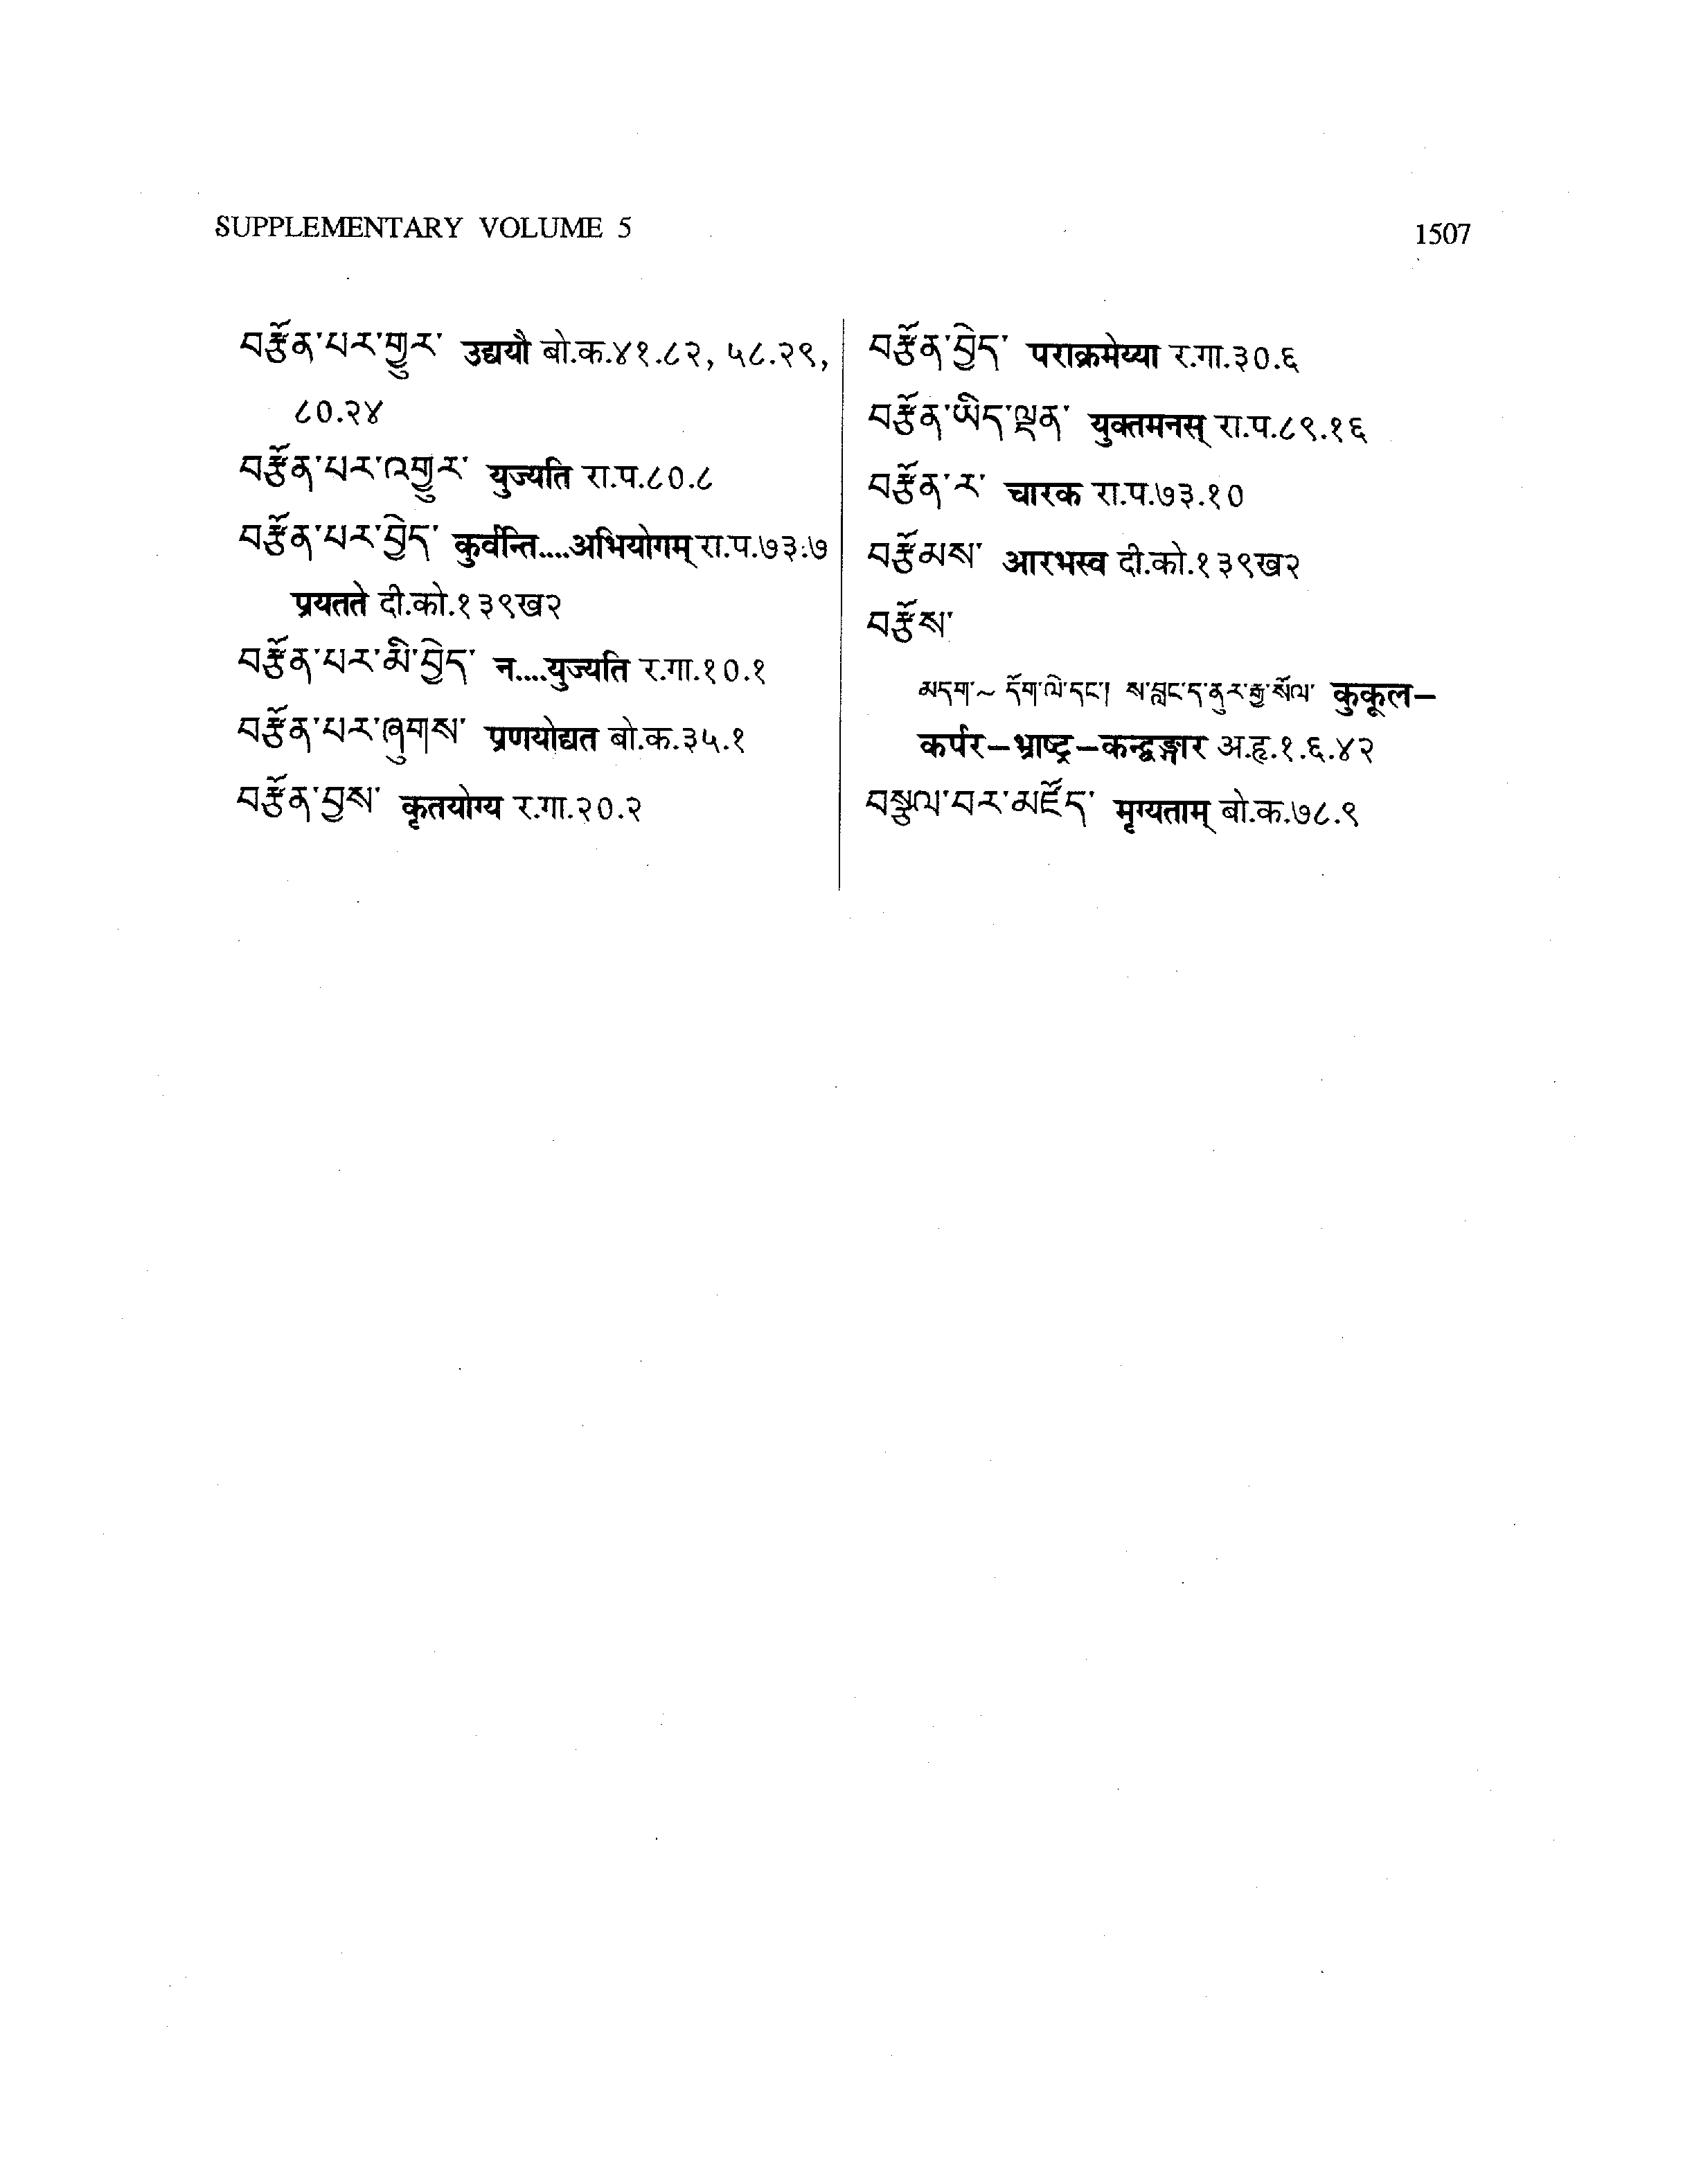 SUPPLEMENTARY VOLUME 5
1507
བརྩོན་པར་གྱུར་ उद्ययौ बो.क.४१.८२, ५८.२९,
८०.२४
བརྩོན་པར་འགྱུར་ युज्यति रा.प.८०.८
བརྩོན་པར་བྱེད་ कुर्वन्ति....अभियोगम् रा.प.७३.७
प्रयतते दी.को.१३९ख२
བརྩོན་པར་མི་བྱེད་ न....युज्यति र.गा.१०.१
བརྩོན་པར་ཞུགས་ प्रणयोद्यत बो.क.३५.१
བརྩོན་བྱས་ कृतयोग्य र.गा.२०.२
བརྩོན་བྱེད་ पराक्रमेय्या र.गा.३०.६
བརྩོན་ཡིད་ལྡན་ युक्तमनस् रा.प.८९.१६
བརྩོན་ར་ चारक रा.प.७३.१०
བརྩོམས་ आरभस्व दी.को.१३९ख२
བརྩོས་
མདག་~ དོག་ལེ་དང་། ས་སླང་ད་ནུར་རྒྱ་སོལ་ कुकूल–
कर्पर–भ्राष्ट्र–कन्द्वङ्गार अ.हृ.१.६.४२
བསྩལ་བར་མཛོད་ मृग्यताम् बो.क.७८.९